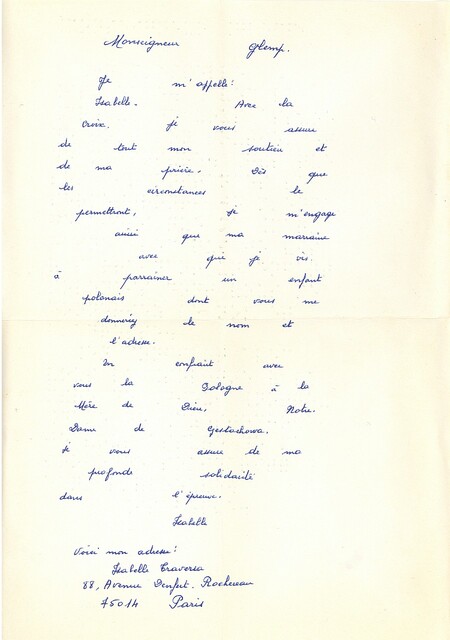 Monseigneur Glemp.
Je m'appelle:
Isabelle. Avec la
Croix. je vous assure
de tout mon soutien et
de ma prière, Dès que
les circonstances le
permettront, je m'engage
ainsi que ma marraine
avec qui je vis.
à parrainer un enfant
polonais dont vous me
donnerez le nom et
l'adresse.
En confiant avec
vous la Pologne à la
Mère de Dieu, Notre.
Dame de Czestochowa.
je vous assure de ma
profonde solidarité
dans l'épreuve.
Isabelle
Voici mon adresse:
Isabelle Traversa
88, Avenue Denfert. Rochereau
75014 Paris